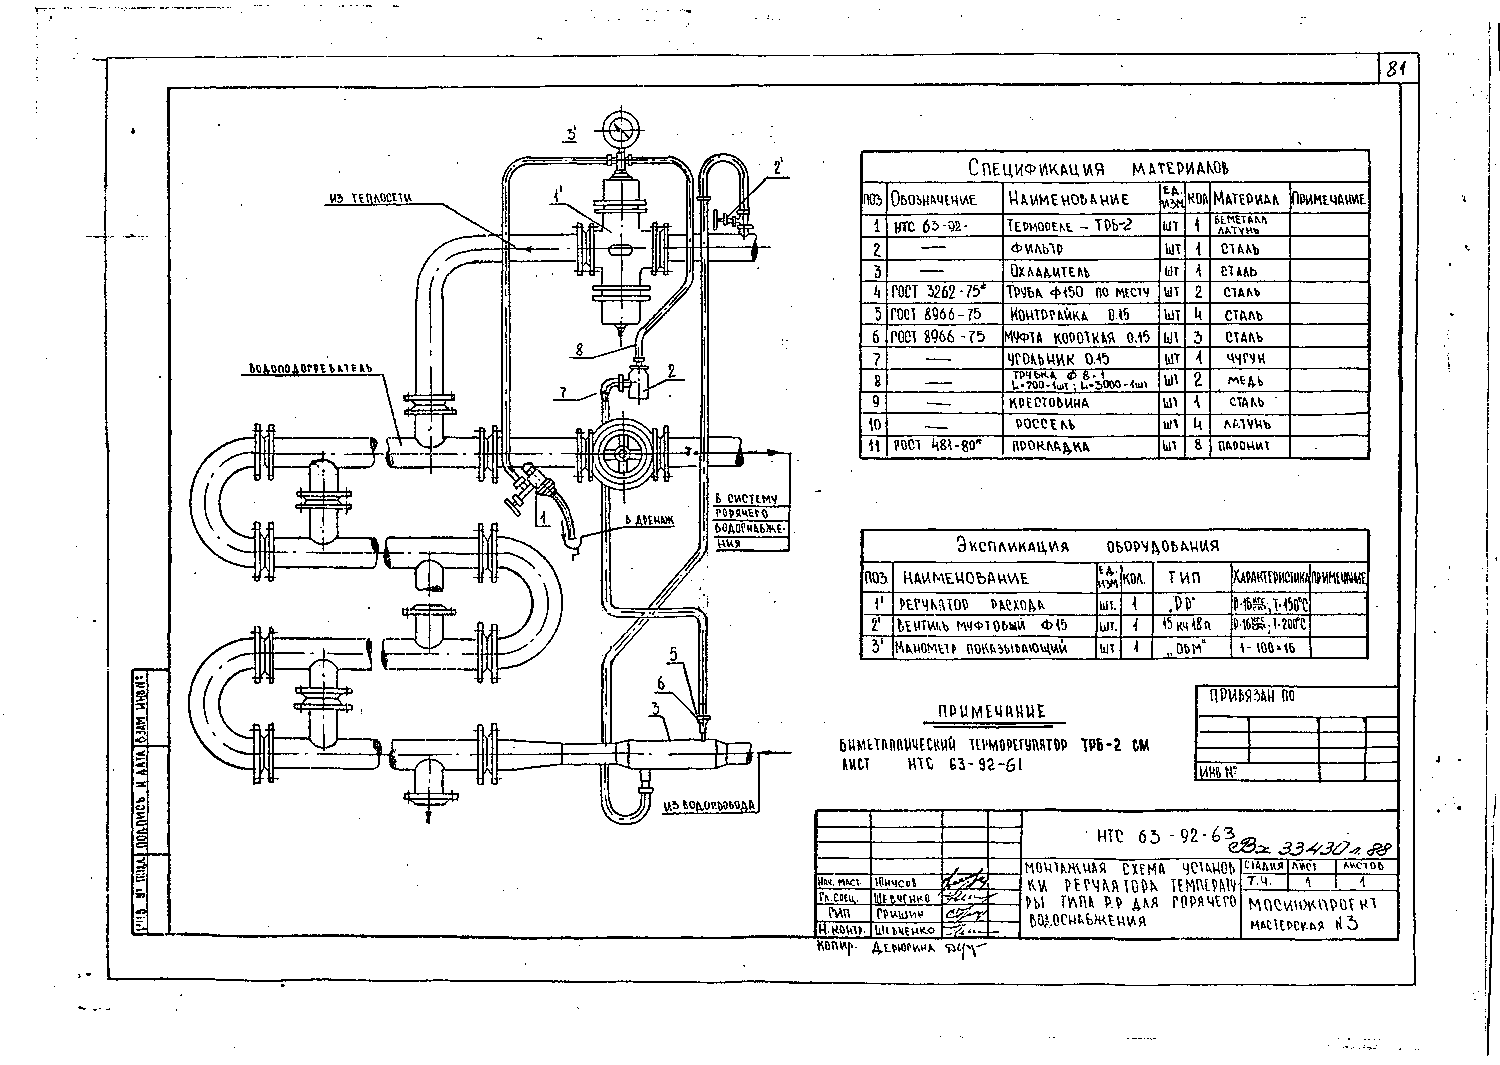 81
3'
2'
1'
ИЗ ТЕПЛОСЕТИ
ВОДОПОДОГРЕВАТЕЛЬ
8
2
7
Т
1
В ДРЕНАЖ
В СИСТЕМУ
ГОРЯЧЕГО
ВОДОСНАБЖЕ-
НИЯ
5
6
3
ИЗ ВОДОПРОВОДА
СПЕЦИФИКАЦИЯ МАТЕРИАЛОВ
ПОЗ ОБОЗНАЧЕНИЕ НАИМЕНОВАНИЕ ЕД. ИЗМ. КОЛ МАТЕРИАЛ ПРИМЕЧАНИЕ
1 НТС 63-92- ТЕРМОРЕЛЕ - ТРБ-2 ШТ 1 БЕМЕТАЛЛ ЛАТУНЬ
2 — ФИЛЬТР ШТ 1 СТАЛЬ
3 — ОХЛАДИТЕЛЬ ШТ 1 СТАЛЬ
4 ГОСТ 3262-75* ТРУБА Ф150 ПО МЕСТУ ШТ 2 СТАЛЬ
5 ГОСТ 8966-75 КОНТРГАЙКА 0.15 ШТ 4 СТАЛЬ
6 ГОСТ 8966-75 МУФТА КОРОТКАЯ 0.15 ШТ 3 СТАЛЬ
7 — УГОЛЬНИК 0.15 ШТ 1 ЧУГУН
8 — ТРУБКА Ф 8-1 L=700-1шт; L=3000-1шт ШТ 2 МЕДЬ
9 — КРЕСТОВИНА ШТ 1 СТАЛЬ
10 — РОССЕЛЬ ШТ 4 ЛАТУНЬ
11 ГОСТ 481-80* ПРОКЛАДКА ШТ 8 ПАРОНИТ
ЭКСПЛИКАЦИЯ ОБОРУДОВАНИЯ
ПОЗ НАИМЕНОВАНИЕ ЕД. ИЗМ КОЛ. ТИП ХАРАКТЕРИСТИКА ПРИМЕЧАНИЕ
1' РЕГУЛЯТОР РАСХОДА ШТ. 1 „РР" Т-150°С
2' ВЕНТИЛЬ МУФТОВЫЙ Ф15 ШТ. 1 15 КЧ 18п Т-200°С
3' МАНОМЕТР ПОКАЗЫВАЮЩИЙ ШТ 1 „ОБМ" 1-100×16
ПРИМЕЧАНИЕ
БИМЕТАЛЛИЧЕСКИЙ ТЕРМОРЕГУЛЯТОР ТРБ-2 СМ
ЛИСТ НТС 63-92-61
ПРИВЯЗАН ПО
ИНВ №
НТС 63-92-63
Вх 33430 л. 88
МОНТАЖНАЯ СХЕМА УСТАНОВ
КИ РЕГУЛЯТОРА ТЕМПЕРАТУ
РЫ ТИПА Р.Р ДЛЯ ГОРЯЧЕГО
ВОДОСНАБЖЕНИЯ
СТАДИЯ ЛИСТ ЛИСТОВ
Т.Ч. 1 1
МОСИНЖПРОЕКТ
МАСТЕРСКАЯ N 3
НАЧ. МАСТ. ЮНУСОВ
ГЛ. СПЕЦ. ШЕВЧЕНКО
ГИП ГРИШИН
Н. КОНТР. ШЕВЧЕНКО
КОПИР. ДЕРЮГИНА
ИНВ № ПОДЛ. ПОДПИСЬ И ДАТА ВЗАМ ИНВ.№